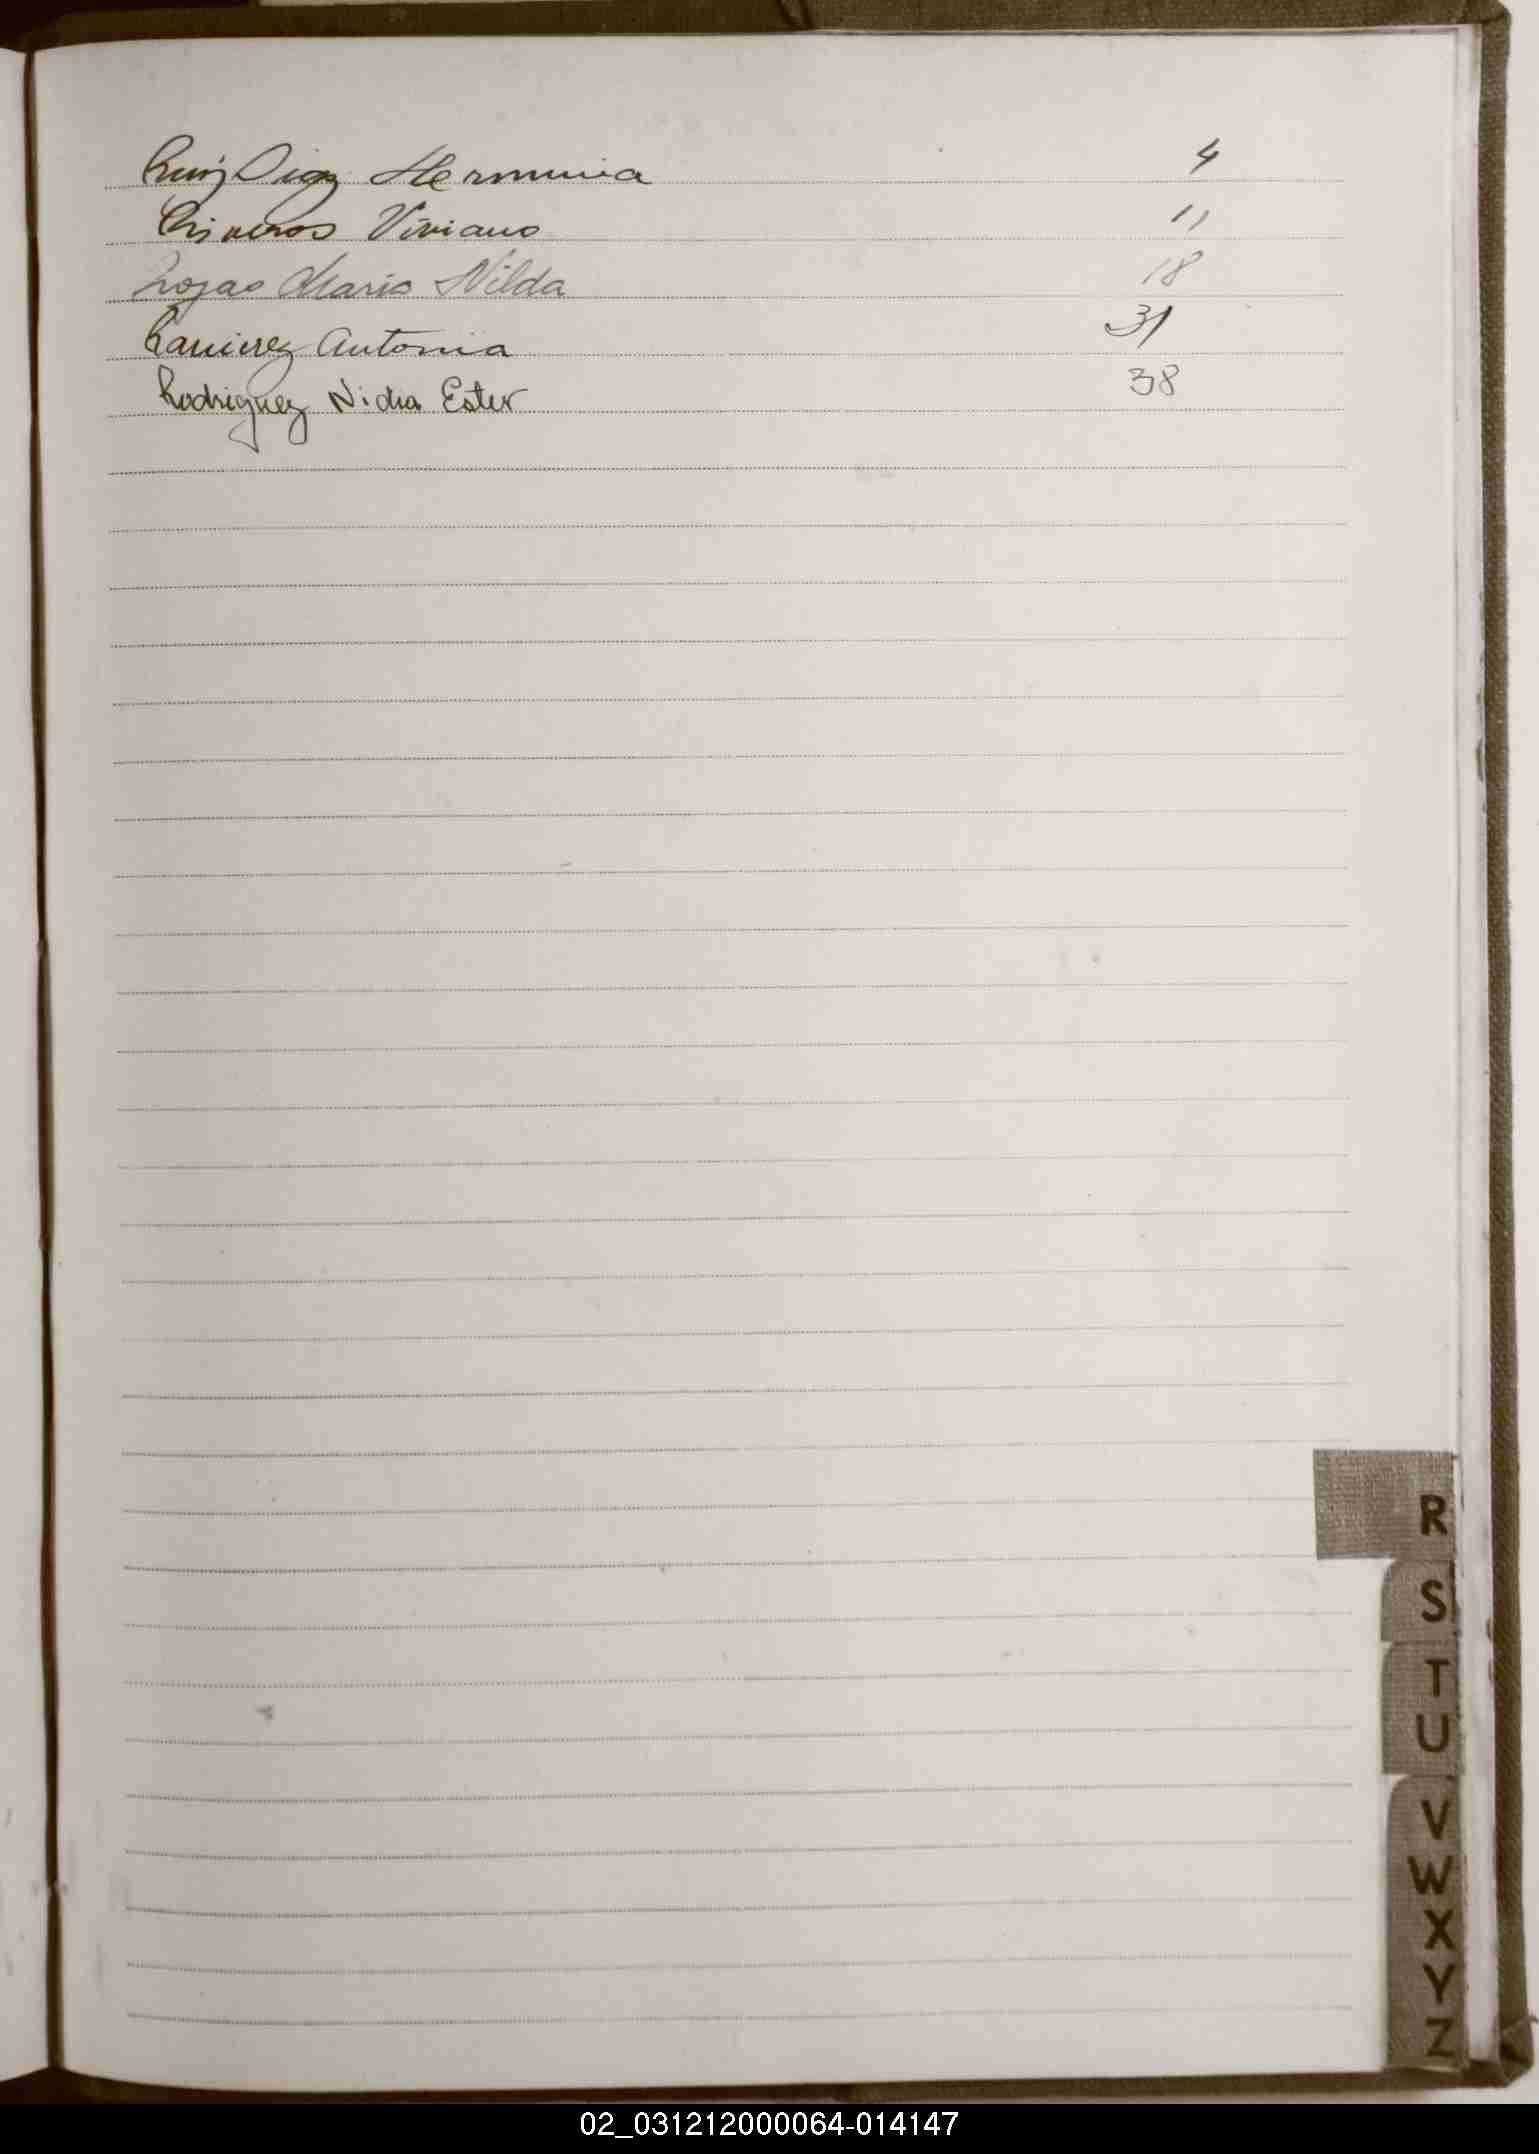 Ruiz Diaz Herminia 4
Risueños Viviano 11
Rojas Maria Nilda 18
Ramirez Antonia 31
Rodriguez Nidia Ester 38
R
S
T
U
V
W
X
Y
Z
02_031212000064-014147